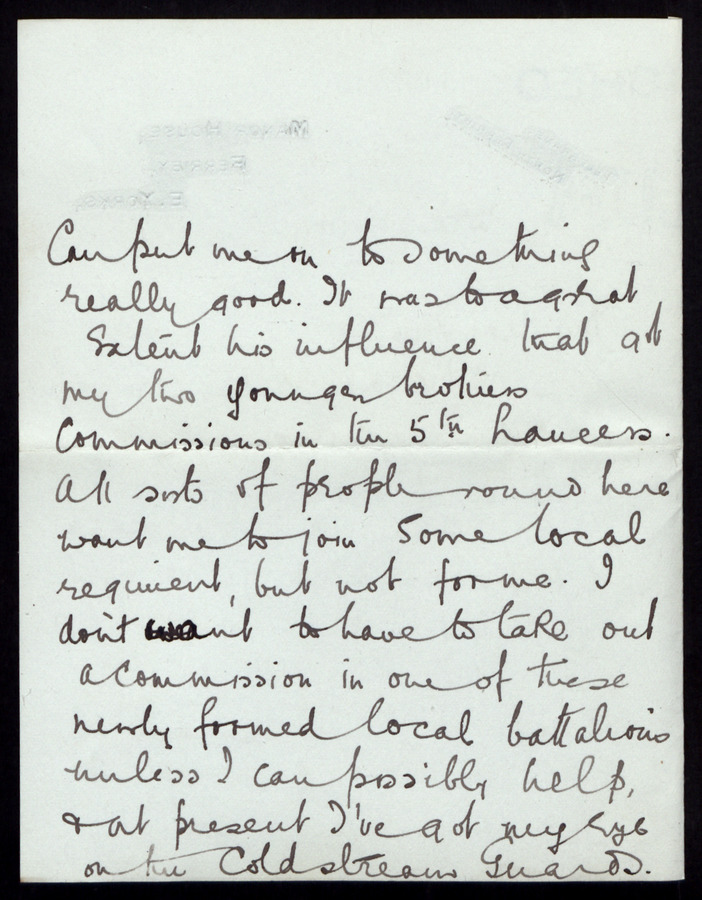 MANOR HOUSE,
FERRIBY,
E. YORKS.
Can put me on to something
really good. It was to a great
extent his influence that got
my two younger brothers
Commissions in the 5th Lancers.
All sorts of people round here
want me to join some local
regiment, but not for me. I
don't want to have to take out
a Commission in one of these
newly formed local battalions
unless I can possibly help,
& at present I've got my eye
on the Coldstream Guards.